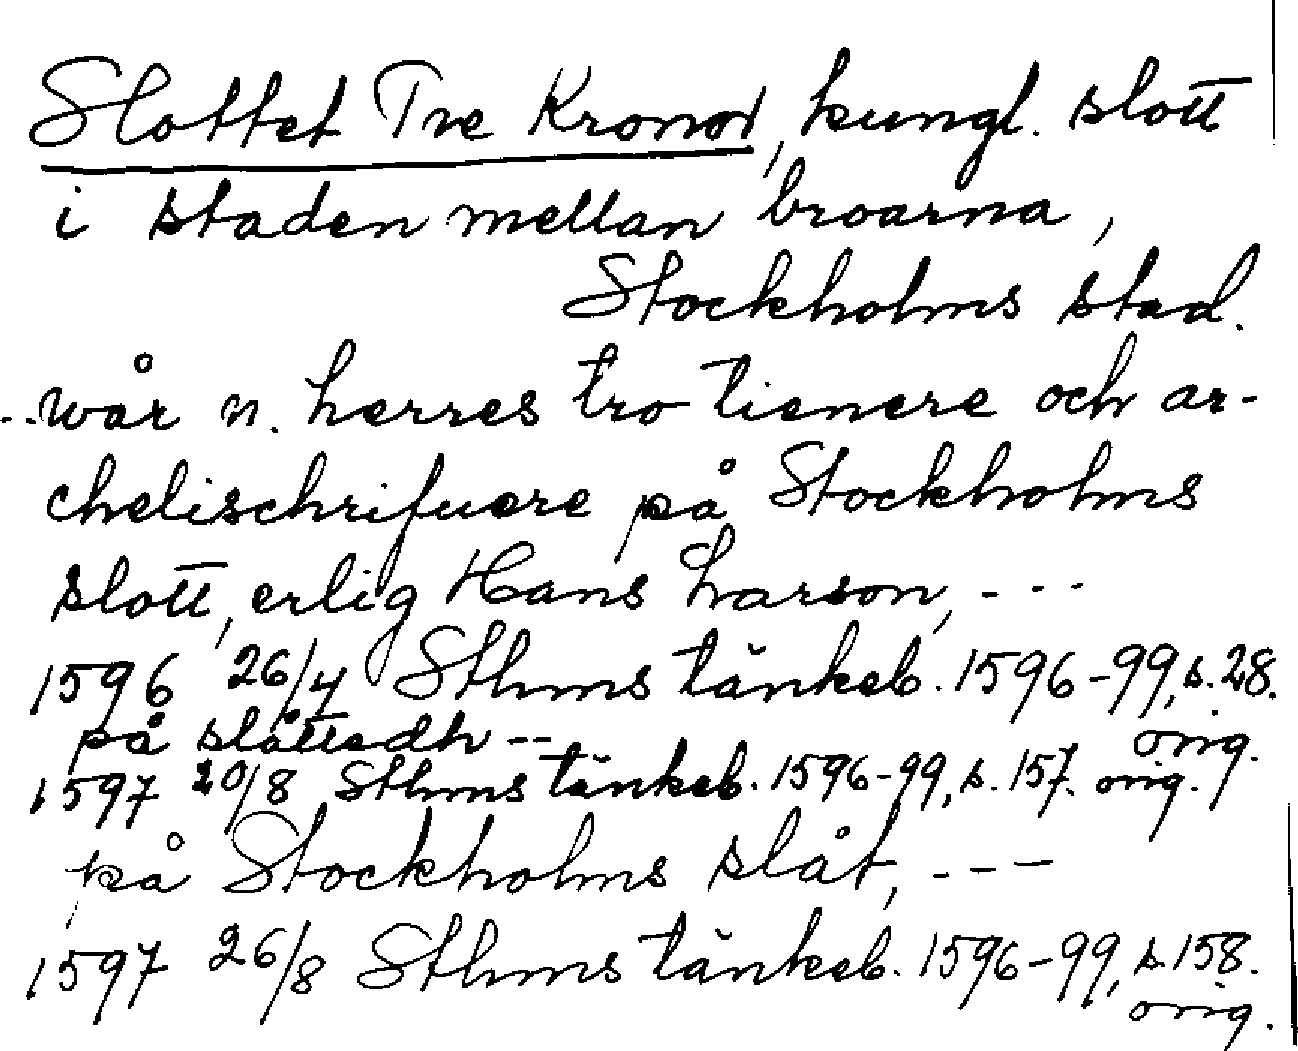 Slottet Tre Kronor, kungl. slott
i staden mellan broarna,
Stockholms stad.
..wår n. herres tro tienere och ar-
chelischrifuere på Stockholms
slott, erlig Hans Larson, ---
1596 26/4 Sthms tänkeb. 1596-99, s. 28.
orig.
på slåttedh --
1597 20/8 Sthms tänkeb. 1596-99, s. 157. orig.
på Stockholms slåt, ---
1597 26/8 Sthms tänkeb. 1596-99, s. 158.
orig.